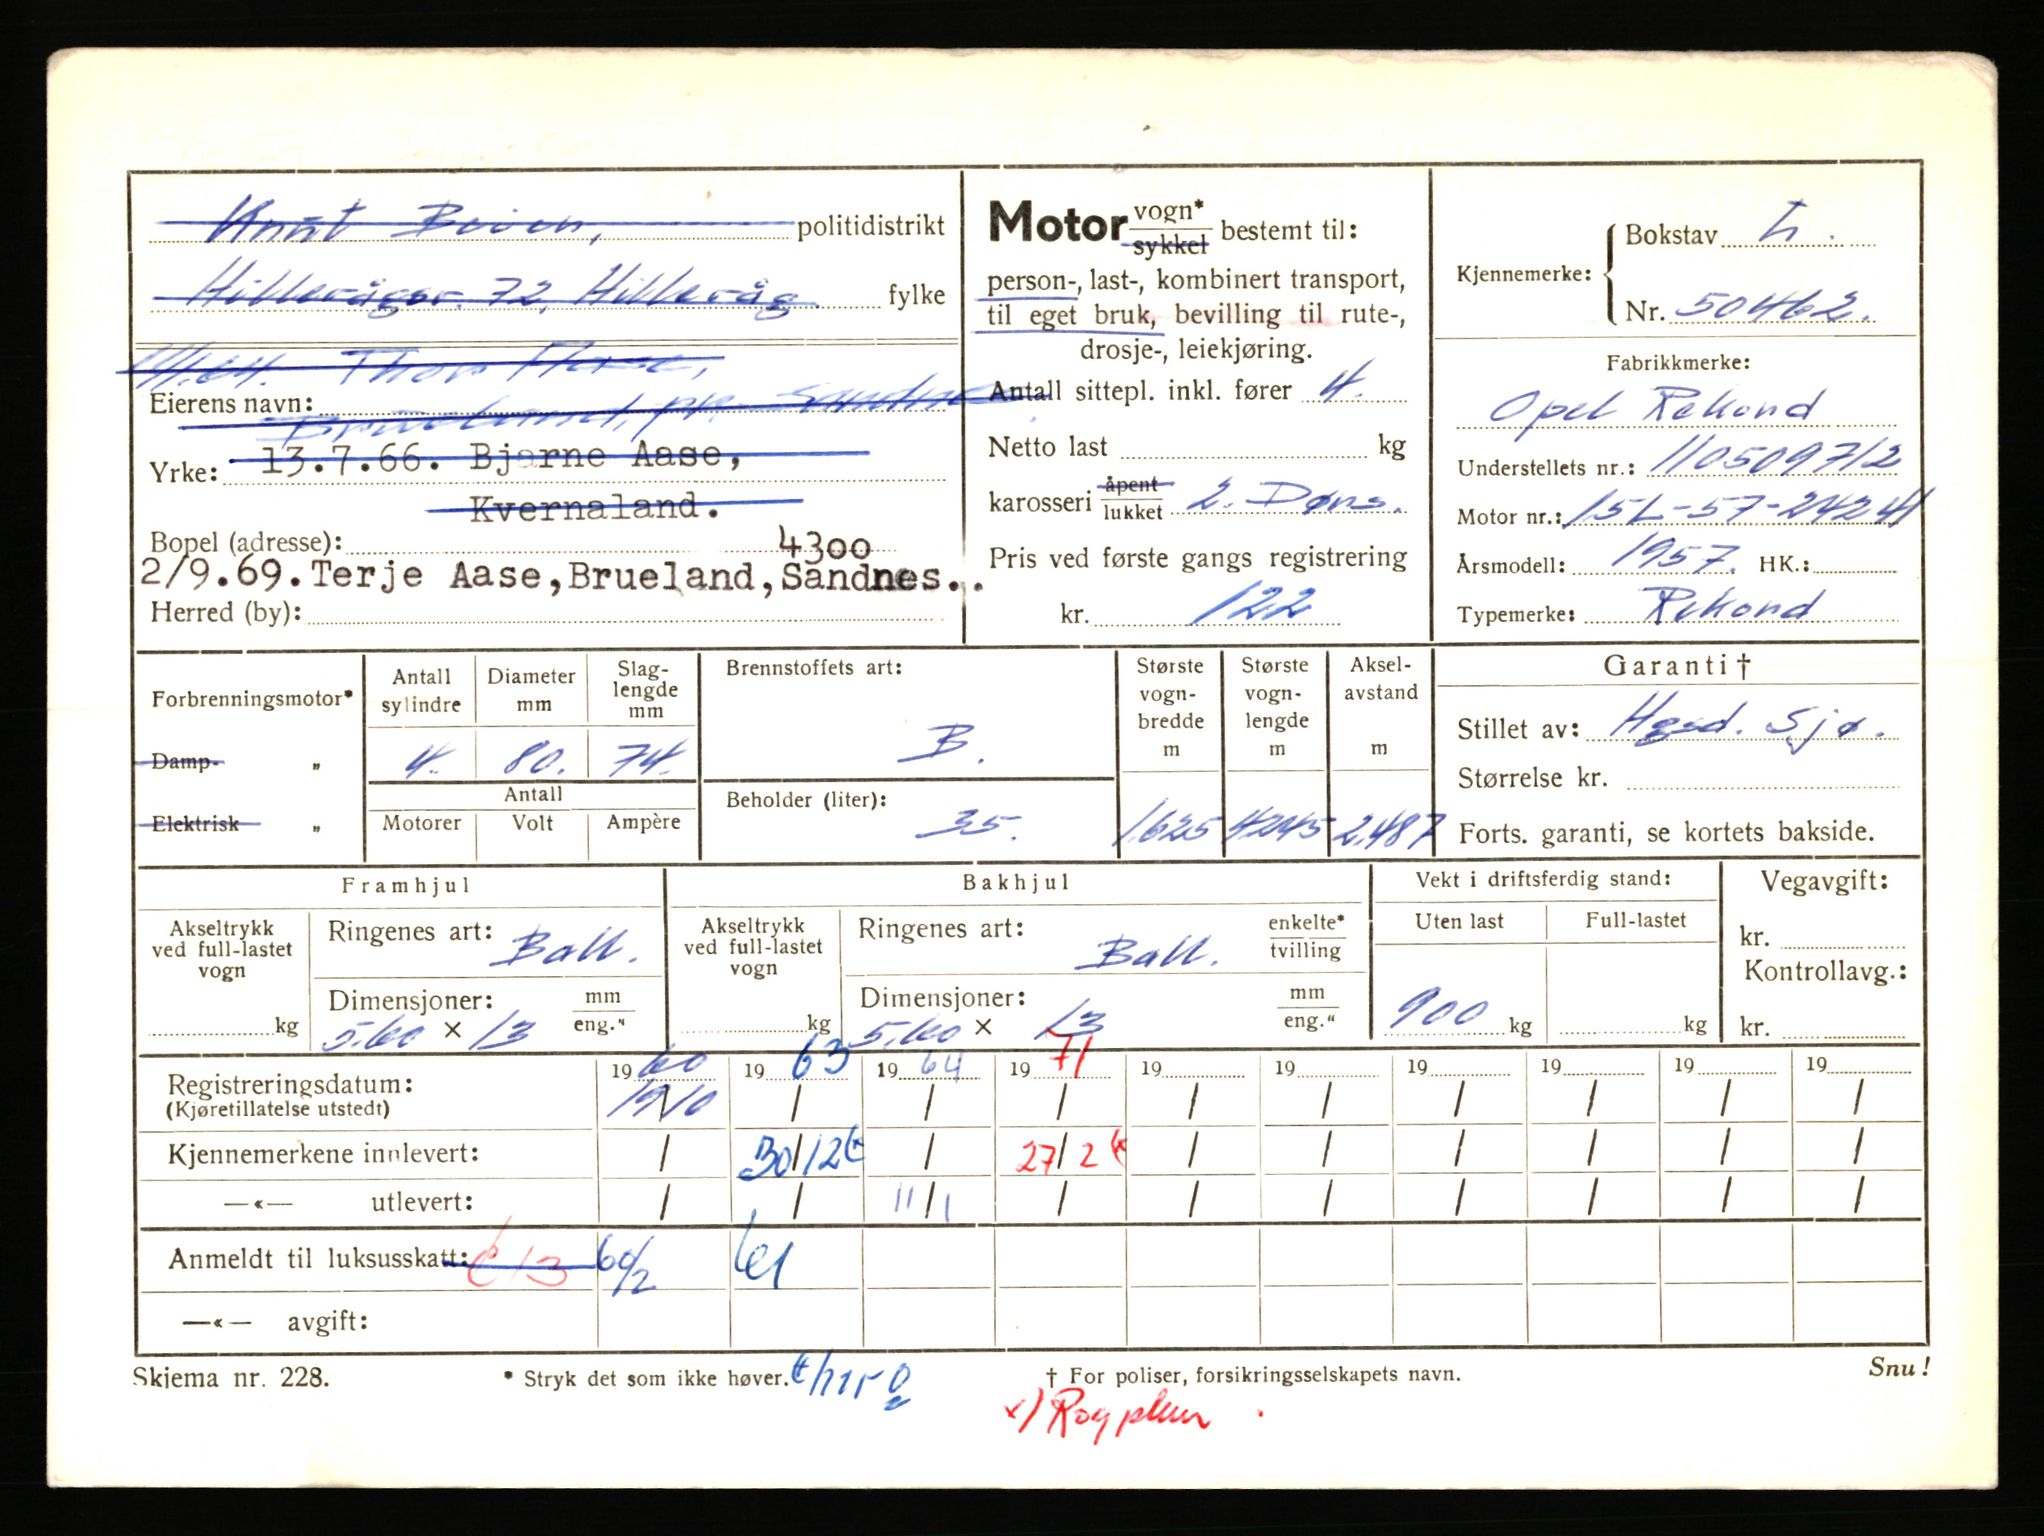 Knut politidistrikt
Hillevåg fylke
Thor
Eierens navn:
13.7.66. Bjarne Aase,
Yrke:
Kvernaland.
Bopel (adresse): 4300
2/9.69. Terje Aase, Brueland, Sandnes..
Herred (by):
Motor vogn* sykkel bestemt til:
person-, last-, kombinert transport,
til eget bruk, bevilling til rute-,
drosje-, leiekjøring.
Antall sittepl. inkl. fører 4.
Netto last kg
karosseri åpent lukket 2. Dørs.
Pris ved første gangs registrering
kr. 122
Kjennemerke: Bokstav L.
Nr. 50462.
Fabrikkmerke:
Opel Rekord
Understellets nr.: 110509712
Motor nr.: 15L-57-24241
Årsmodell: 1957. HK.:
Typemerke: Rekord
Forbrenningsmotor*
Damp- „
Elektrisk „
Antall sylindre 4.
Diameter mm 80.
Slaglengde mm 74.
Antall
Motorer Volt Ampère
Brennstoffets art:
B.
Beholder (liter):
35.
Største vogn-bredde m 1.625
Største vogn-lengde m 4245
Aksel-avstand m 2.487
Garanti †
Stillet av: Sjø.
Størrelse kr.
Forts. garanti, se kortets bakside.
Framhjul
Akseltrykk ved full-lastet vogn kg
Ringenes art: Ball.
Dimensjoner: mm eng."
5.60 × 13
Bakhjul
Akseltrykk ved full-lastet vogn kg
Ringenes art: Ball. enkelte* tvilling
Dimensjoner: mm eng."
5.60 × 13
Vekt i driftsferdig stand:
Uten last Full-lastet
900 kg kg
Vegavgift:
kr.
Kontrollavg.:
kr.
Registreringsdatum: 19 60 19 63 19 64 19 71 19 19 19 19 19 19
(Kjøretillatelse utstedt) 19/10 / / / / / / / / /
Kjennemerkene innlevert: / 30/12 / 27/2 / / / / / /
—«— utlevert: / / 11/1 / / / / / / /
Anmeldt til luksusskatt: 60/2 61
—«— avgift:
Skjema nr. 228.
* Stryk det som ikke høver.
† For poliser, forsikringsselskapets navn.
Snu!
x)